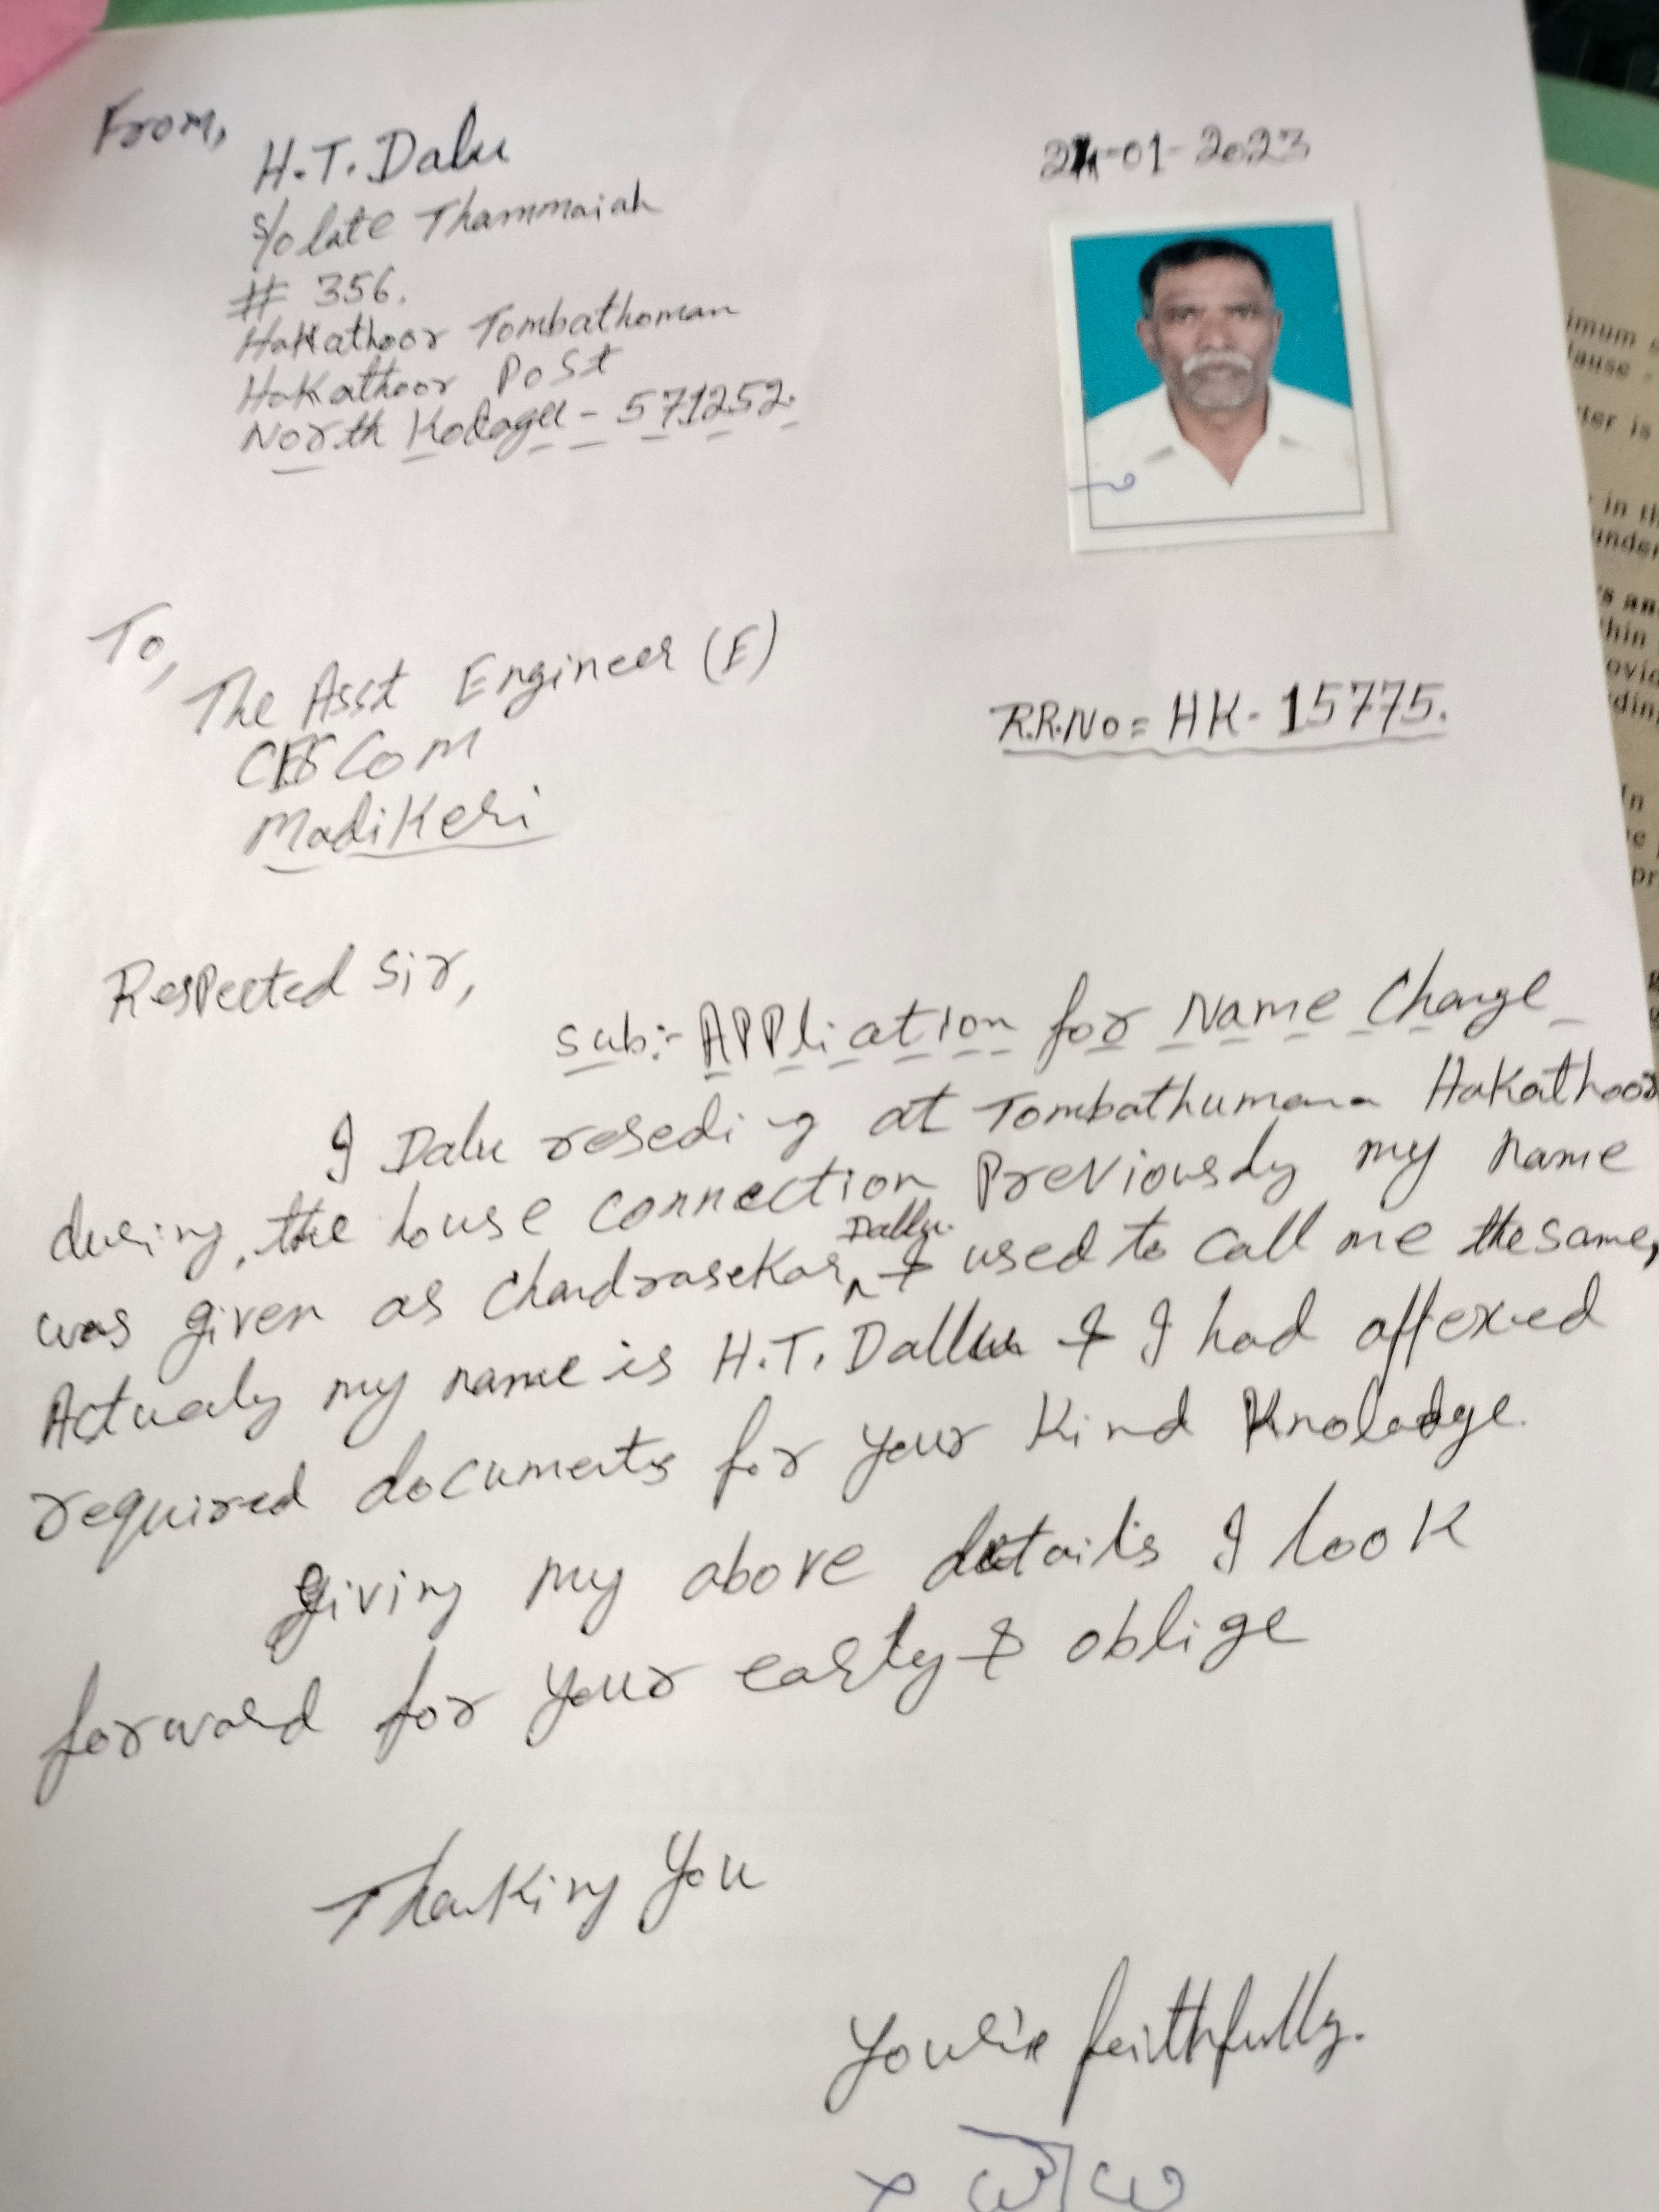 From,
H.T. Dalu
24-01-2023
S/o late Thammaiah
# 356.
Hakathoor Tombathoman
Hakathoor Post
North Kodagu - 571252.
To,
The Asst Engineer (E)
CESCom
Madikeri
R.R.No = HK-15775.
Respected Sir,
Sub:- Application for Name Change
I Dalu reseding at Tombathumana Hakathoor
during, the house connection Previously my name
Dallu.
was given as Chandrasekar, & used to call me the same,
Actualy my name is H.T. Dallu & I had affexed
required documents for your Kind Knoladge.
giving my above details I look
forward for your early & oblige
Thanking You
Your's faithfully.
x
imum
lause -
ter is
in th
under
s an
hin
ovid
ding
In
e
pr